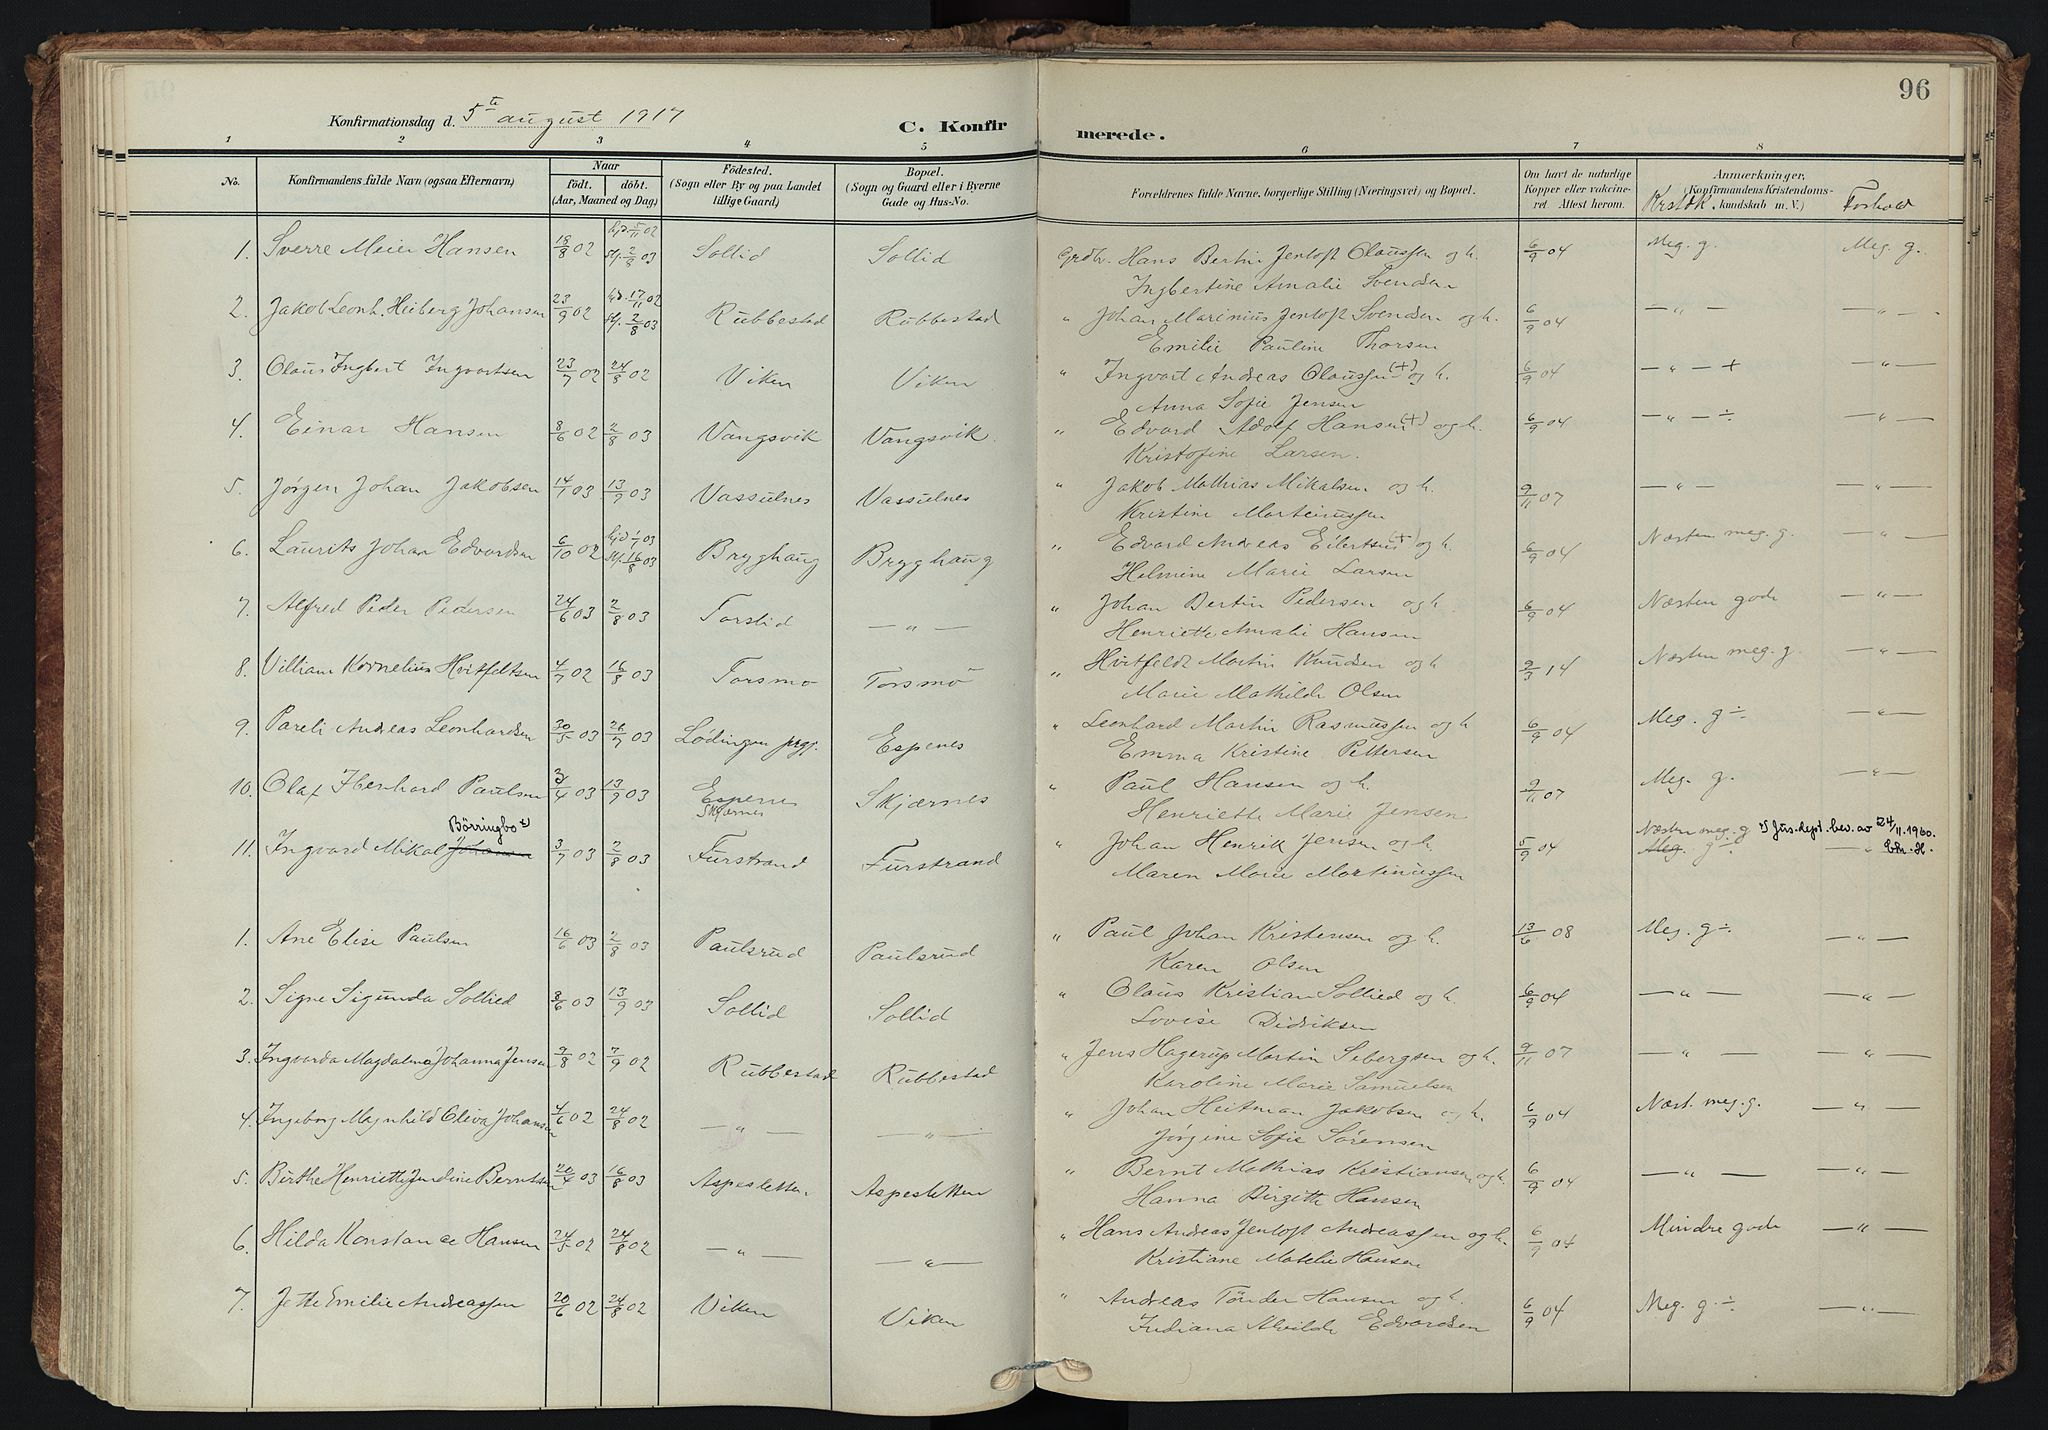 96
Konfirmationsdag d. 5te august 1917
C. Konfirmerede.
1 2 3 4 5 6 7 8
No. Konfirmandens fulde Navn (ogsaa Efternavn) Naar født. døbt. (Aar, Maaned og Dag) Fødested. (Sogn eller By og paa Landet tillige Gaard) Bopæl. (Sogn og Gaard eller i Byerne Gade og Hus-No. Forældrenes fulde Navne, borgerlige Stilling (Næringsvei) og Bopæl. Om havt de naturlige Kopper eller vakcineret. Attest herom. Anmærkninger, (Konfirmandens Kristendomskundskab m. V.) Forhold
1. Sverre Meier Hansen 18/8 02 hjd. 5/11 02 st. 2/8 03 Sollid Sollid Grdbr. Hans Bertin Jentoft Claussen og h. 6/9 04 Meg. g. Meg. g.
Ingbertine Amalie Svendsen
2. Jakob Leonh. Heiberg Johansen 23/9 02 hjd. 17/11 02 st. 2/8 03 Rubbestad Rubbestad " Johan Marinius Jentoft Svendsen og h. 6/9 04 — " — — " —
Emilie Pauline Thorsen
3. Olaus Ingbert Ingvartsen 23/7 02 24/8 02 Viken Viken " Ingvart Andreas Olaussen (+) og h. 6/9 04 — " — + — " —
Anna Sofie Jensen
4. Einar Hansen 8/6 02 2/8 03 Vangsvik Vangsvik. " Edvard Adolf Hansen (+) og h. 6/9 04 — " — ÷ — " —
Kristofine Larsen.
5. Jørgen Johan Jakobsen 14/7 03 13/9 03 Vassulnes Vassulnes " Jakob Mathias Mikalsen og h. 9/11 07 — " — — " —
Kristine Marteinussen
6. Laurits Johan Edvardsen 6/10 02 hjd 1/7 03 st. 16/8 03 Bryghaug Bryghaug " Edvard Andreas Eilertsen + og h. 6/9 04 Næsten meg. g. — " —
Helmine Marie Larsen
7. Alfred Peder Pedersen 24/6 03 2/8 03 Torslid — " — " Johan Bertin Pedersen og h. 6/9 04 Næsten gode — " —
Henriette Amalie Hansen
8. Villiam Kornelius Hvitfeltsen 4/7 02 16/8 03 Torsmo Torsmo " Hvitfeldt Martin Knudsen og h 9/3 14 Næsten meg. g. — " —
Marie Mathilde Olsen
9. Pareli Andreas Leonhardsen 30/5 03 26/7 03 Lødingen prgj. Espenes " Leonhard Martin Rasmussen og h 6/9 04 Meg. g ÷ — " —
Emma Kristine Pettersen
10. Olaf Ebenhard Paulsen /4 03 13/9 03 Espenes Skjærnes Skjærnes " Paul Hansen og h. 9/11 07 Meg. g. — " —
Henriette Marie Jensen
Børringbo x) Næsten meg. g x) Jus.dept. bev. av 24/11. 1960.
11. Ingvard Mikal Johansen 3/7 03 2/8 03 Furstrand Furstrand " Johan Henrik Jensen og h. 5/9 04 Meg. g ÷ — " Chr. H.
Maren Marie Martinussen
1. Ane Elise Paulsen 16/6 03 2/8 03 Paulsrud Paulsrud " Paul Johan Kristensen og h. 13/6 08 Meg. g ÷. — " —
Karen Olsen
2. Signe Sigunda Sollied 8/6 03 13/9 03 Sollid Sollid " Olaus Kristian Sollied og h. 6/9 04 — " — — " —
Lovise Didriksen
3. Ingvarda Magdalma Johanna Jensen 9/8 02 7/9 02 Rubbestad Rubbestad " Jens Hagerup Martin Sebergsen og h. 9/11 07 — " — — " —
Karoline Marie Samuelsen
4. Ingeborg Magnhild Oliva Johansen 4/6 02 24/8 02 — " — — " — " Johan Heitman Jakobsen og h. 6/9 04 Næst. meg. g. — " —
Jørgine Sofie Sørensen
5. Birthe Henriette Jendine Berntsen 20/4 03 16/8 03 Aspesletten. Aspesletten " Bernt Mathias Kristiansen og h. 6/9 04 — " — — " —
Hanna Birgitte Hansen
6. Hilda Konstance Hansen 24/5 02 24/8 02 — " — — " — " Hans Andreas Jentoft Andreassen og h. 6/9 04 Mindre gode — " —
Kristiane Matelie Hansen
7. Jette Emilie Andreassen 20/6 02 24/8 02 Viken Viken " Andreas Tønder Hansen og h. 6/9 04 Meg. g. ÷ — " —
Indiana Alvilde Edvardsen